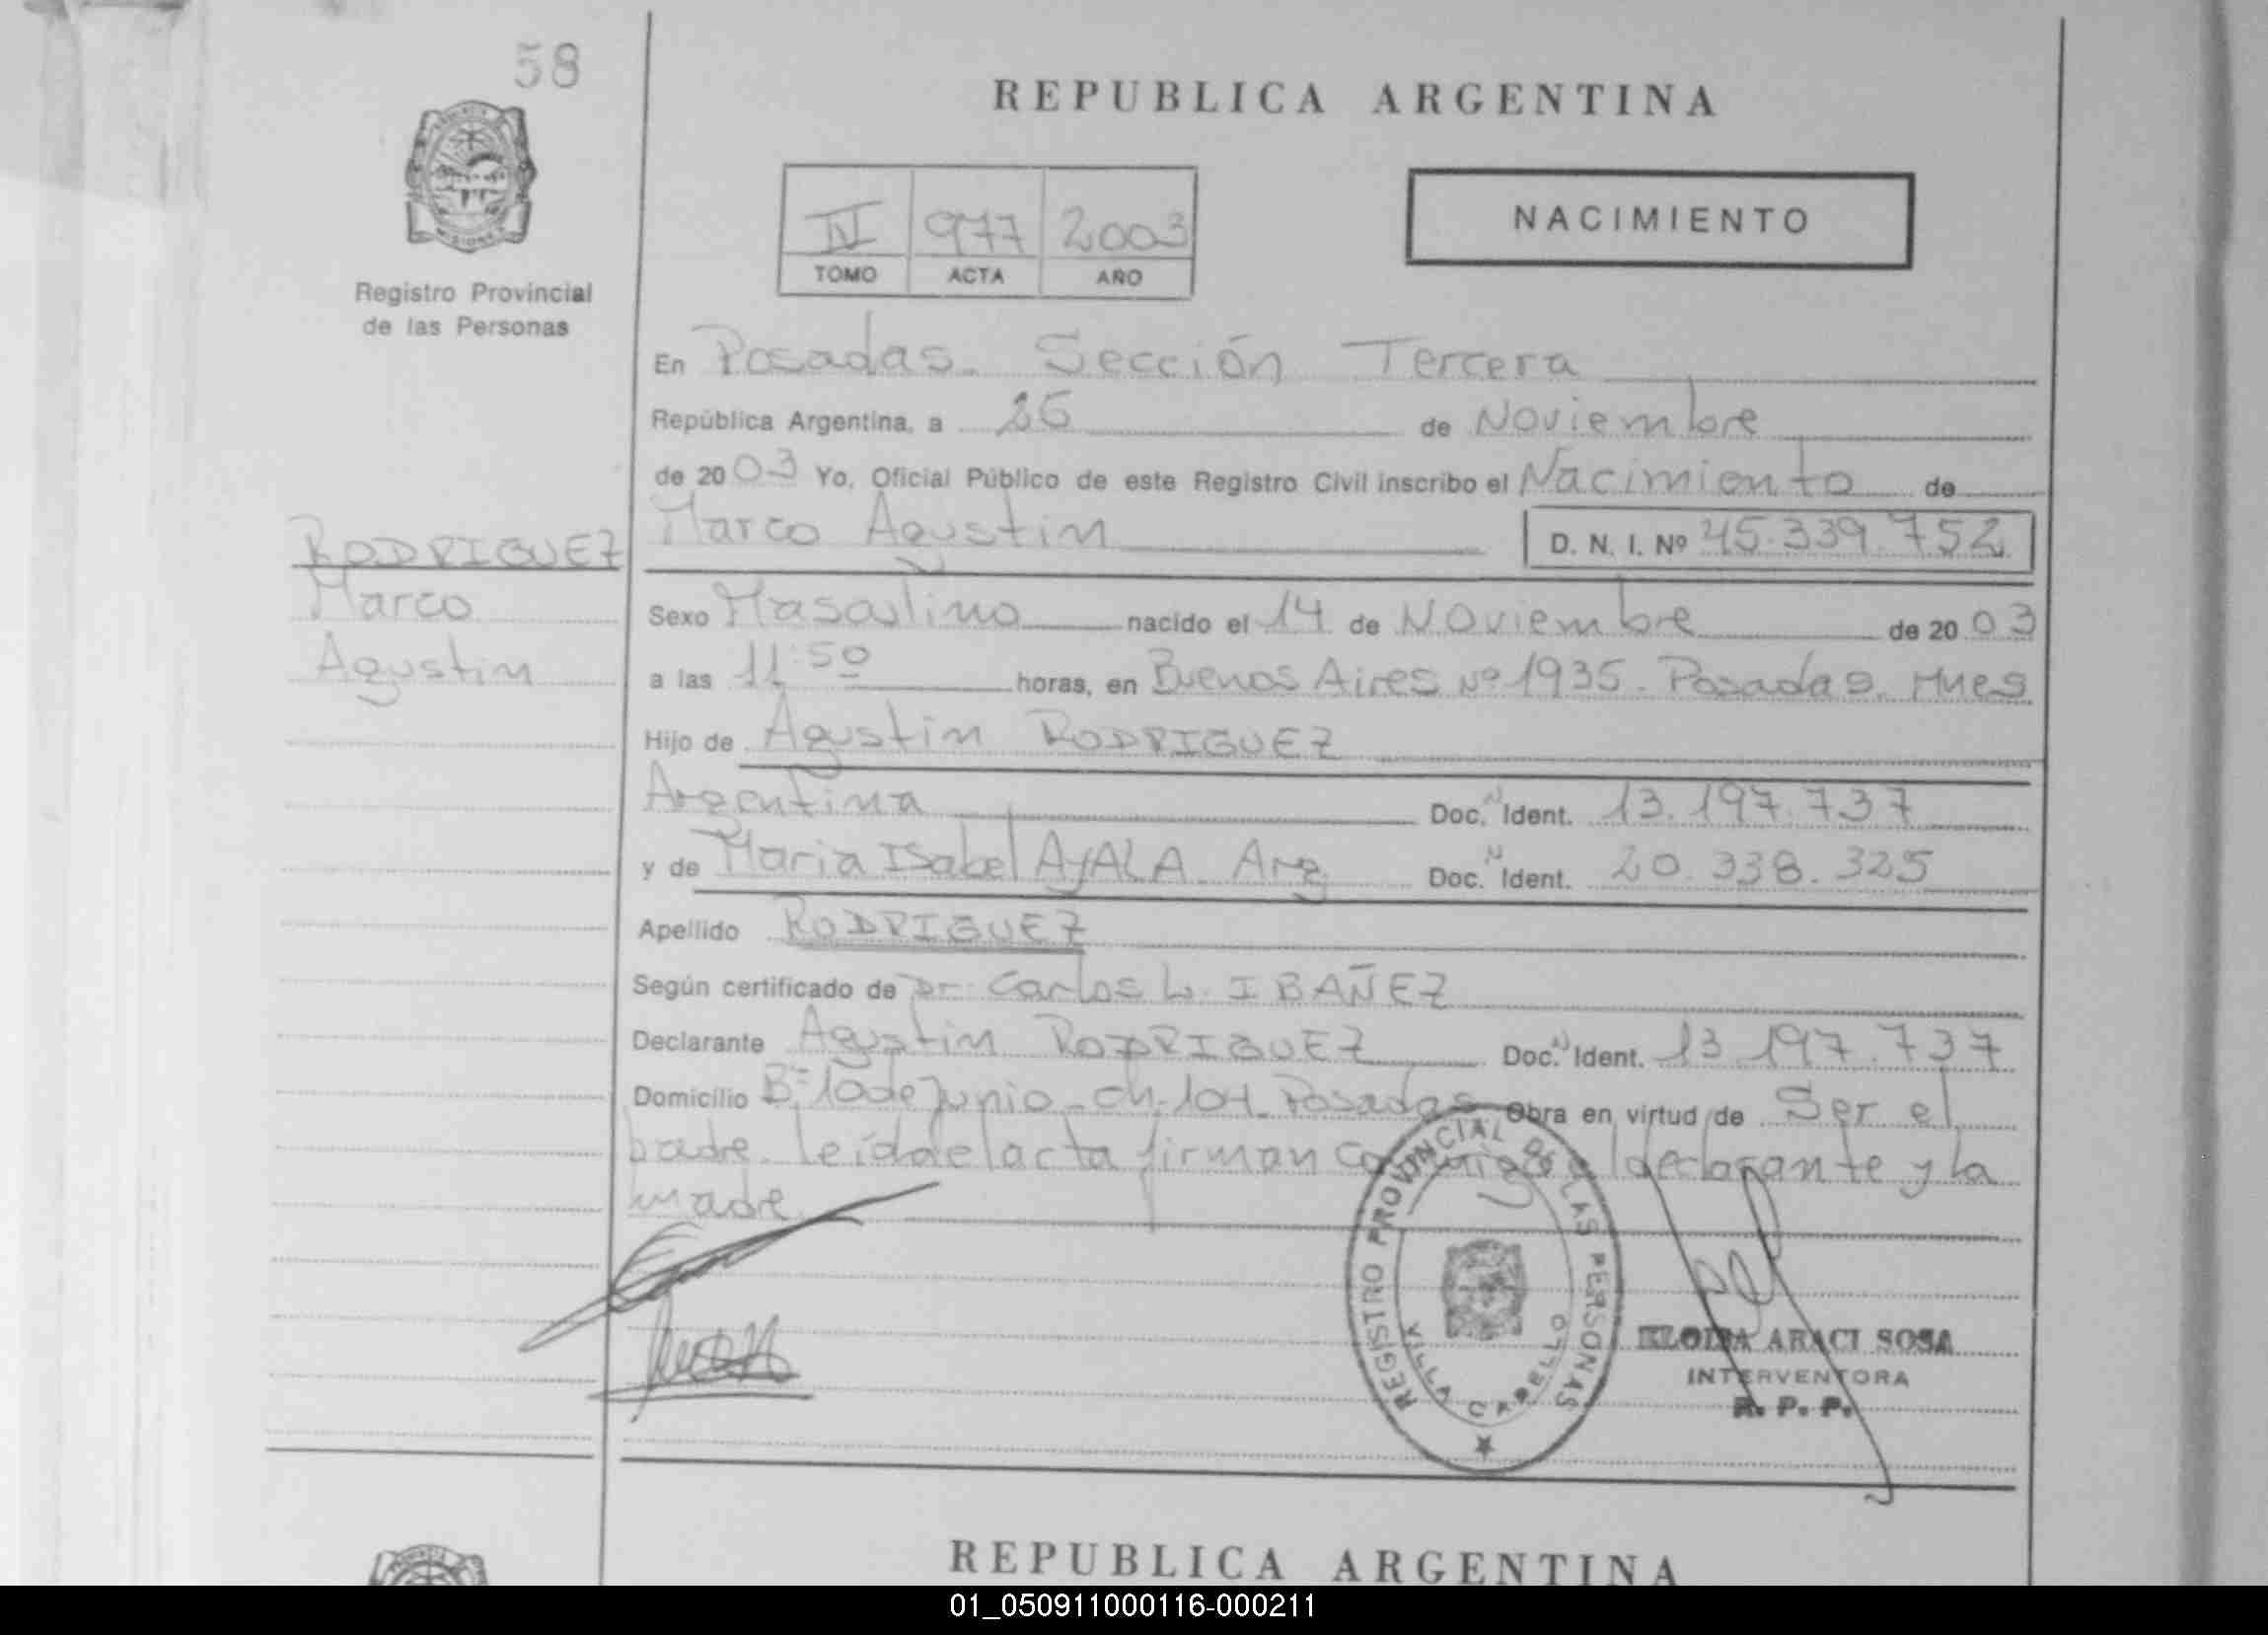 58
REPUBLICA ARGENTINA
IV 977 2003
TOMO ACTA AÑO
NACIMIENTO
MISIONES
Registro Provincial
de las Personas
En Posadas. Sección Tercera
República Argentina, a 26 de Noviembre
de 2003 Yo, Oficial Público de este Registro Civil inscribo el Nacimiento de
RODRIGUEZ
Marco
Agustin
Marco Agustin D. N. I. Nº 45.339.752
Sexo Masculino nacido el 14 de Noviembre de 2003
a las 11:50 horas, en Buenos Aires Nº 1935. Posadas. Mnes
Hijo de Agustin RODRIGUEZ
Argentina Doc. N Ident. 13.197.737
y de Maria Isabel AYALA. Arg Doc. N Ident. 20.338.325
Apellido RODRIGUEZ
Según certificado de Dr. Carlos L. IBAÑEZ
Declarante Agustin RODRIGUEZ Doc. N Ident. 13.197.737
Domicilio Bº 10 de Junio - ch. 104. Posadas Obra en virtud de Ser el
padre. Leída el acta firman conmigo el declarante y la
madre.
REGISTRO PROVINCIAL DE LAS PERSONAS
VILLA CABELLO
ELOISA ARACI SOSA
INTERVENTORA
R. P. P.
REPUBLICA ARGENTINA
01_050911000116-000211